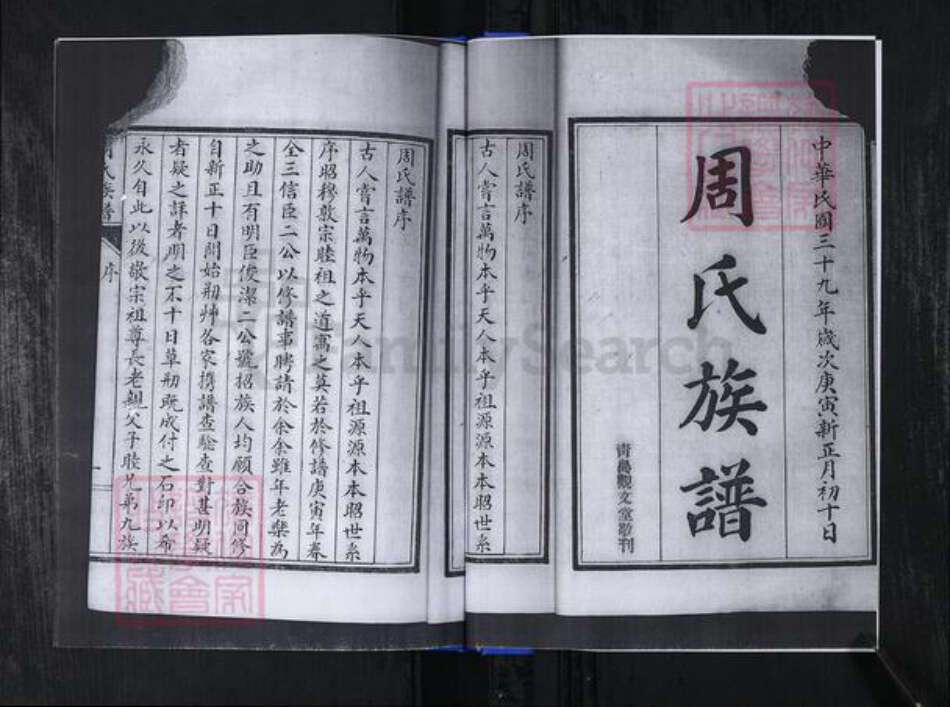 中華民國三十九年歲次庚寅新正月初十日
周氏族譜
青島觀文堂敬刊
周氏譜序
古人嘗言萬物本乎天人本乎祖源源本本昭世系
周氏譜序
古人嘗言萬物本乎天人本乎祖源源本本昭世系
序昭穆敦宗睦祖之道寓之莫若於修譜庚寅年春
全三信臣二公以修譜事聘請於余余雖年老樂為
之助且有明臣俊潔二公號招族人均願合族同修
自新正十日開始刱艸各家携譜查驗查對甚明疑
者疑之詳者明之不十日草刱既成付之石印以希
永久自此以後敬宗祖尊長老親父子睦兄弟九族
氏族譜
序
一
FamilySearch